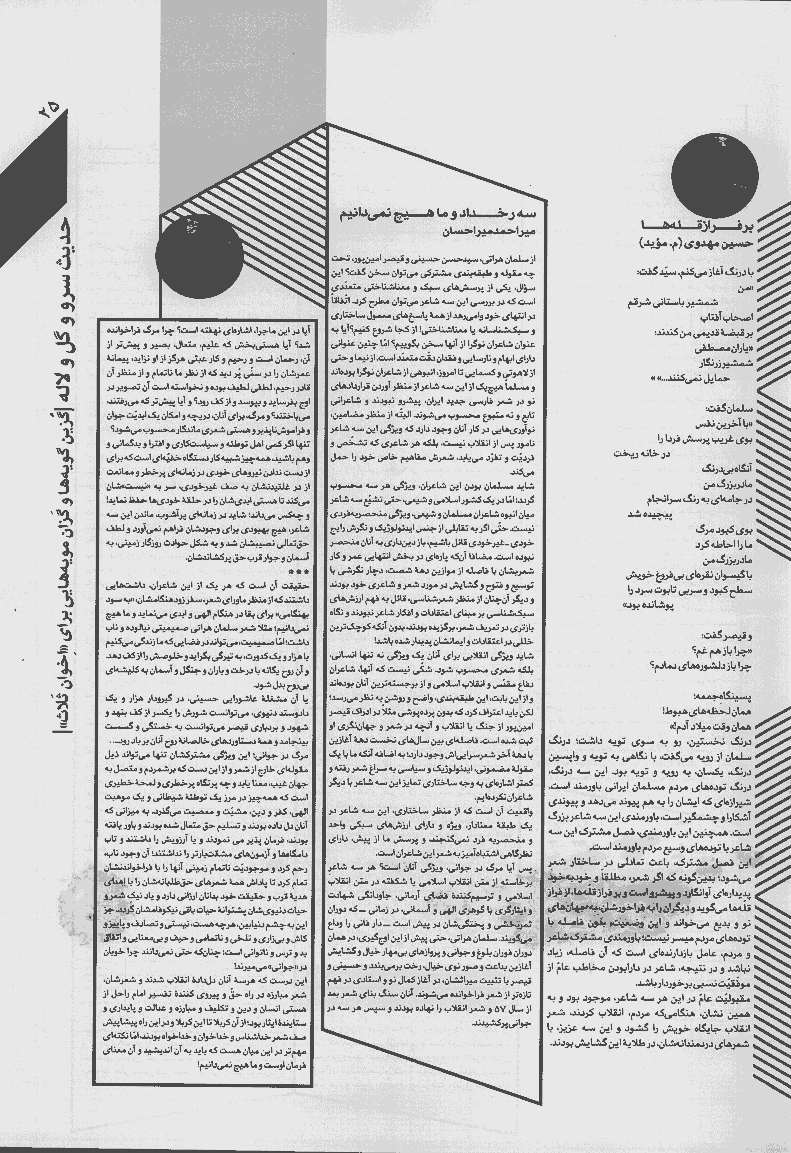 ۲۵
حدیث سرو و گل و لاله |گزین گویه‌ها و گزان مویه‌هایی برای «اخوان ثلاث»|
بر فـراز قـله‌هـا
حسین مهدوی (م. مؤید)
با درنگ آغاز می‌کنم، سیّد گفت:
«من
شمشیر باستانی شرقم
اصحاب آفتاب
بر قبضۀ قدیمی من کندند:
«یاران مصطفی
شمشیر زرنگار
حمایل نمی‌کنند...» »
سلمان گفت:
«با آخرین نفس
بوی غریب پرسش فردا را
در خانه ریخت
آنگاه بی‌درنگ
مادربزرگ من
در جامه‌ای به رنگ سرانجام
پیچیده شد
بوی کبود مرگ
ما را احاطه کرد
مادربزرگ من
با گیسوان نقره‌ای بی‌فروغ خویش
سطح کبود و سربی تابوت سرد را
پوشانده بود»
و قیصر گفت:
«چرا باز هم غم؟
چرا باز دلشوره‌های دمادم؟
پسینگاه جمعه:
همان لحظه‌های هبوط!
همان وقت میلاد آدم!»
درنگ نخستین، رو به سوی توبه داشت؛ درنگ
سلمان از رویه می‌گفت، با نگاهی به توبه و واپسین
درنگ، یکسان، به رویه و توبه بود. این سه درنگ،
درنگ توده‌های مردم مسلمان ایرانی باورمند است.
شیرازه‌ای که ایشان را به هم پیوند می‌دهد و پیوندی
آشکارا و چشمگیر است، باورمندی این سه شاعر بزرگ
است. همچنین این باورمندی، فصل مشترک این سه
شاعر با توده‌های وسیع مردم باورمند است.
این فصل مشترک، باعث تعالی در ساختار شعر
می‌شود؛ بدین‌گونه که اگر شعر، مطلقاً و خودبه‌خود
پدیده‌ای آوانگارد و پیشرو است و بر فراز قله‌ها، از فراز
قله‌ها می‌گوید و دیگران را به فراخورشان، به جهان‌های
نو و بدیع می‌خواند و این وضعیت، بدون فاصله با
توده‌های مردم میسر نیست؛ باورمندی مشترک شاعر
و مردم، عامل بازدارنده‌ای است که آن فاصله، زیاد
نباشد و در نتیجه، شاعر در دارا بودن مخاطب عام از
موفقیّت نسبی برخوردار باشد.
مقبولیّت عام در این هر سه شاعر، موجود بود و به
همین نشان، هنگامی‌که مردم، انقلاب کردند، شعر
انقلاب جایگاه خویش را گشود و این سه عزیز، با
شعرهای دردمندانه‌شان، در طلایۀ این گشایش بودند.
سه رخـــداد و ما هـیـچ نمی‌دانیم
میراحمد میراحسان
از سلمان هراتی، سیدحسن حسینی و قیصر امین‌پور، تحت
چه مقوله و طبقه‌بندی مشترکی می‌توان سخن گفت؟ این
سؤال، یکی از پرسش‌های سبک و معناشناختی متعدّدی
است که در بررسی این سه شاعر می‌توان مطرح کرد. اتفاقاً
در انتهای خود وامی‌رهد از همۀ پاسخ‌های معمول ساختاری
و سبک‌شناسانه یا معناشناختی! از کجا شروع کنیم؟ آیا به
عنوان شاعران نوگرا از آنها سخن بگوییم؟ امّا چنین عنوانی
دارای ابهام و نارسایی و فقدان دقت متعدّد است. از نیما و حتی
از لاهوتی و کسمایی تا امروز، انبوهی از شاعران نوگرا بوده‌اند
و مسلماً هیچ‌یک از این سه شاعر از منظر آوردن قراردادهای
نو در شعر فارسی جدید ایران، پیشرو نبودند و شاعرانی
تابع و نه متبوع محسوب می‌شوند. البتّه از منظر مضامین،
نوآوری‌هایی در کار آنان وجود دارد که ویژگی این سه شاعر
نامور پس از انقلاب نیست، بلکه هر شاعری که تشخّص و
فردیّت و تفرّد می‌یابد، شعرش مفاهیم خاص خود را حمل
می‌کند.
شاید مسلمان بودن این شاعران، ویژگی هر سه محسوب
گردد؛ امّا در یک کشور اسلامی و شیعی، حتی تشیّع سه شاعر
میان انبوه شاعران مسلمان و شیعی، ویژگی منحصربه‌فردی
نیست. حتّی اگر به تقابلی از جنس ایدئولوژیک و نگرش رایج
خودی ـ غیرخودی قائل باشیم، باز دین‌داری به آنان منحصر
نبوده است. مضافاً آن‌که پاره‌ای در بخش انتهایی عمر و کار
شعریشان با فاصله از موازین دهۀ شصت، دچار نگرشی با
توسیع و فتوح و گشایش در مورد شعر و شاعری خود بودند
و دیگر آن‌چنان از منظر شعرشناسی، قائل به فهم ارزش‌های
سبک‌شناسی بر مبنای اعتقادات و افکار شاعر نبودند و نگاه
بازتری در تعریف شعر، برگزیده بودند، بدون آنکه کوچک‌ترین
خللی در اعتقادات و ایمانشان پدیدار شده باشد!
شاید ویژگی انقلابی برای آنان یک ویژگی نه تنها انسانی،
بلکه شعری محسوب شود. شکّی نیست که آنها، شاعران
دفاع مقدّس و انقلاب اسلامی و از برجسته‌ترین آنان بوده‌اند
و از این بابت، این طبقه‌بندی، واضح و روشن به نظر می‌رسد؛
لکن باید اعتراف کرد که بدون پرده‌پوشی مثلاً در ادراک قیصر
امین‌پور از جنگ یا انقلاب و آنچه در شعر و جهان‌نگری او
ثبت شده است، فاصله‌ای بین سال‌های نخست دهۀ آغازین
با دهۀ آخر شعرسرایی‌اش وجود دارد؛ به اضافه آنکه ما با یک
مقولۀ مضمونی، ایدئولوژیک و سیاسی به سراغ شعر رفته و
کمتر اشاره‌ای به وجه ساختاری تمایز این سه شاعر با دیگر
شاعران نکرده‌ایم.
واقعیت آن است که از منظر ساختاری، این سه شاعر در
یک طبقۀ معنادار، ویژه و دارای ارزش‌های سبکی واحد
و منحصر به فرد نمی‌گنجند و پرسش ما از پیش، دارای
نظرگاهی اشتباه‌آمیز به شعر این شاعران است.
پس آیا مرگ در جوانی، ویژگی آنان است؟ هر سه شاعر
برخاسته از متن انقلاب اسلامی یا شکفته در متن انقلاب
اسلامی و ترسیم‌کنندۀ فضای آرمانی، جاودانگی شهادت
و ایثارگری با گوهری الهی و آسمانی، در زمانی ـ که دوران
ثمربخشی و پختگی‌شان در پیش است ـ دار فانی را وداع
می‌گویند. سلمان هراتی، حتی پیش از این اوج‌گیری، در همان
دوران فوران بلوغ و جوانی و پروازهای بی‌مهار خیال و گشایش
آغازین بداعت و صور نوی خیال، رخت برمی‌بندد و حسینی و
قیصر با تثبیت میراثشان، در آغاز کمال نو و استادی در فهم
تازه‌تر از شعر فراخوانده می‌شوند. آنان سنگ بنای شعر بعد
از سال ۵۷ و شعر انقلاب را نهاده بودند و سپس هر سه در
جوانی پرکشیدند.
آیا در این ماجرا، اشاره‌ای نهفته است؟ چرا مرگ فراخوانده
شد؟ آیا هستی‌بخش که علیم، متعال، بصیر و پیش‌تر از
آن، رحمان است و رحیم و کار عبثی هرگز از او نزاید، پیمانۀ
عمرشان را در سنّی پُر دید که از نظر ما ناتمام و از منظر آن
قادر رحیم، لطفی لطیف بوده و نخواسته است آن تصویر در
اوج بفرساید و بپوسد و از کف رود؟ و آیا پیش‌تر که می‌رفتند،
می‌باختند؟ و مرگ، برای آنان، دریچه و امکان یک ابدیّت جوان
و فراموش‌ناپذیر و هستی شعری ماندگار محسوب می‌شود؟
تنها اگر کمی اهل توطئه و سیاست‌کاری و افترا و بدگمانی و
وهم باشید، همه‌چیز شبیه کار دستگاه خفیّه‌ای است که برای
از دست ندادن نیروهای خودی در زمانه‌ای پرخطر و ممانعت
از در غلتیدنشان به صف غیرخودی، سر به «نیست»شان
می‌کند تا هستی ابدی‌شان را در حلقۀ خودی‌ها حفظ نماید!
و چه‌کس می‌داند؛ شاید در زمانه‌ای پرآشوب، ماندن این سه
شاعر، هیچ بهبودی برای وجودشان فراهم نمی‌آورد و لطف
حق‌تعالی نصیبشان شد و به شکل حوادث روزگار زمینی، به
آسمان و جوار قرب حق پرکشاندشان.
* * *
حقیقت آن است که هر یک از این شاعران، داشت‌هایی
داشتند که از منظر ماورای شعر، سفر زودهنگامشان، «به سود
بهنگامی» برای بقا در هنگام الهی و ابدی می‌نماید و ما هیچ
نمی‌دانیم؛ مثلاً شعر سلمان هراتی صمیمیتی نیالوده و ناب
داشت؛ امّا صمیمیت، می‌تواند در فضایی که ما زندگی می‌کنیم
با هزار و یک کدورت، به تیرگی بگراید و خلوصش را از کف دهد.
و آن روح یگانه با درخت و باران و جنگل و آسمان به کلیشه‌ای
بی‌روح بدل شود.
یا آن مشغلۀ عاشورایی حسینی، در گیرودار هزار و یک
دادوستد دنیوی، می‌توانست شورش را یکسر از کف بنهد و
شهود و بردباری قیصر می‌توانست به خستگی و گسست
بینجامد و همۀ دستاوردهای خالصانۀ روح آنان بر باد رود...
مرگ در جوانی؛ این ویژگی مشترکشان تنها می‌تواند ذیل
مقوله‌ای خارج از شعر و از این دست که برشمردم و متصل به
جهان غیب، معنا یابد و چه پرتگاه پرخطری و لمحۀ خطیری
است که همه‌چیز در مرز یک توطئۀ شیطانی و یک موهبت
الهی، کفر و دین، مشیّت و معصیت می‌گذرد. به میزانی که
آنان دل داده بودند و تسلیم حق متعال شده بودند و باور یافته
بودند، فرمان پذیر می نمودند و یا آرزویش را داشتند و تاب
دامگاه‌ها و آزمون‌های مشقّت‌بارتر را نداشتند؛ آن وجود ناب،
رحم کرد و موجودیّت ناتمام زمینی آنها را با فراخواندنشان
تمام کرد تا پاداش همۀ شعرهای حق‌طلبانه‌شان را با اهدای
هدیۀ قرب و حقیقت خود بدانان ارزانی دارد و یاد نیک شعر و
حیات دنیوی‌شان پشتوانۀ حیات باقی نیکوفامشان گردد. جز
این به چشم دنیابین، هرچه هست، نیستی و تصادف و پاییز و
کاش و بی‌زاری و تلخی و ناتمامی و حیف و بی‌معنایی و اتفاق
بد و ترس و ناتوانی است؛ چنان‌که حتی نمی‌دانند چرا خوبان
در «جوانی» می‌میرند!
این درست که هرسۀ آنان دل‌دادۀ انقلاب شدند و شعرشان،
شعر مبارزه در راه حق و پیروی کنندۀ تفسیر امام راحل از
هستی انسان و دین و تکلیف و مبارزه و عدالت و پایداری و
ستایندۀ ایثار بود؛ از آن کربلا تا این کربلا و در این راه پیشاپیش
صف شعر خداشناس و خداخوان و خداخواه بودند، امّا نکته‌ای
مهم‌تر در این میان هست که باید به آن اندیشید و آن معنای
فرمان اوست و ما هیچ نمی‌دانیم!